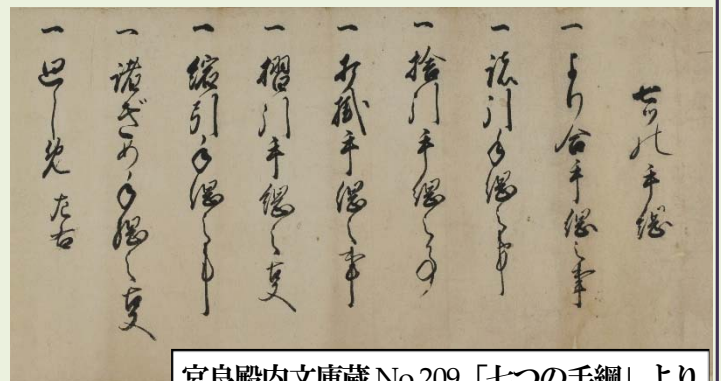 七つの手綱
一 より合手綱之事
一 引手綱之事
一 捨引手綱之事
一 打掛手綱之事
一 摺引手綱之事
一 縮引手綱之事
一 諸ざめ手綱之事
一 左右
宮良殿内文庫蔵 No.209「七つの手綱」より